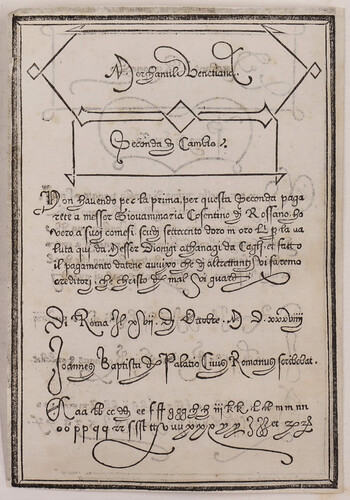 Merchantile Venetiana.
Seconda di Cambio.
Non havendo per la prima, per questa Seconda paga
rete a messer Giovammaria Cosentino di Rossano, ho
voro a suoi comesi. scudi settecento doro in oro per la va
luta qui da Messer Dionigi athanagi da Cagli. et fatto
il pagamento datene avviso che di altrettanti vi faremo
creditori. che christo di mal vi guardi.
Di Roma Di Ottobre. M D. xxxviiii
Joannes Baptista de Palatio Civis Romanus scribebat.
aa bb cc dd ee ff gg hh iii kk ll mm nn
oo pp qq rr sss tt v uu xx yy et